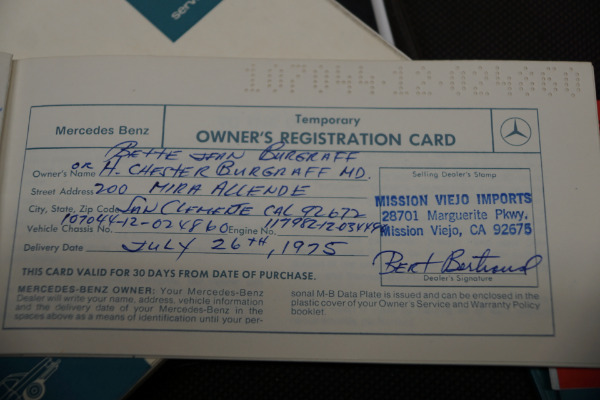 serv
107044-12-024860
Mercedes Benz
Temporary
OWNER'S REGISTRATION CARD
BETTE JEAN BURGRAFF
Owner's Name OR H. CHESTER BURGRAFF MD.
Street Address 200 MIRA ALLENDE
City, State, Zip Code SAN CLEMENTE CAL 92672
Vehicle Chassis No. 107044-12-024860 Engine No.
Delivery Date JULY 26TH, 1975
Selling Dealer's Stamp
MISSION VIEJO IMPORTS
28701 Marguerite Pkwy.
Mission Viejo, CA 92675
Bert Bertrand
Dealer's Signature
THIS CARD VALID FOR 30 DAYS FROM DATE OF PURCHASE.
MERCEDES-BENZ OWNER: Your Mercedes-Benz
Dealer will write your name, address, vehicle information
and the delivery date of your Mercedes-Benz in the
spaces above as a means of identification until your per-
sonal M-B Data Plate is issued and can be enclosed in the
plastic cover of your Owner's Service and Warranty Policy
booklet.